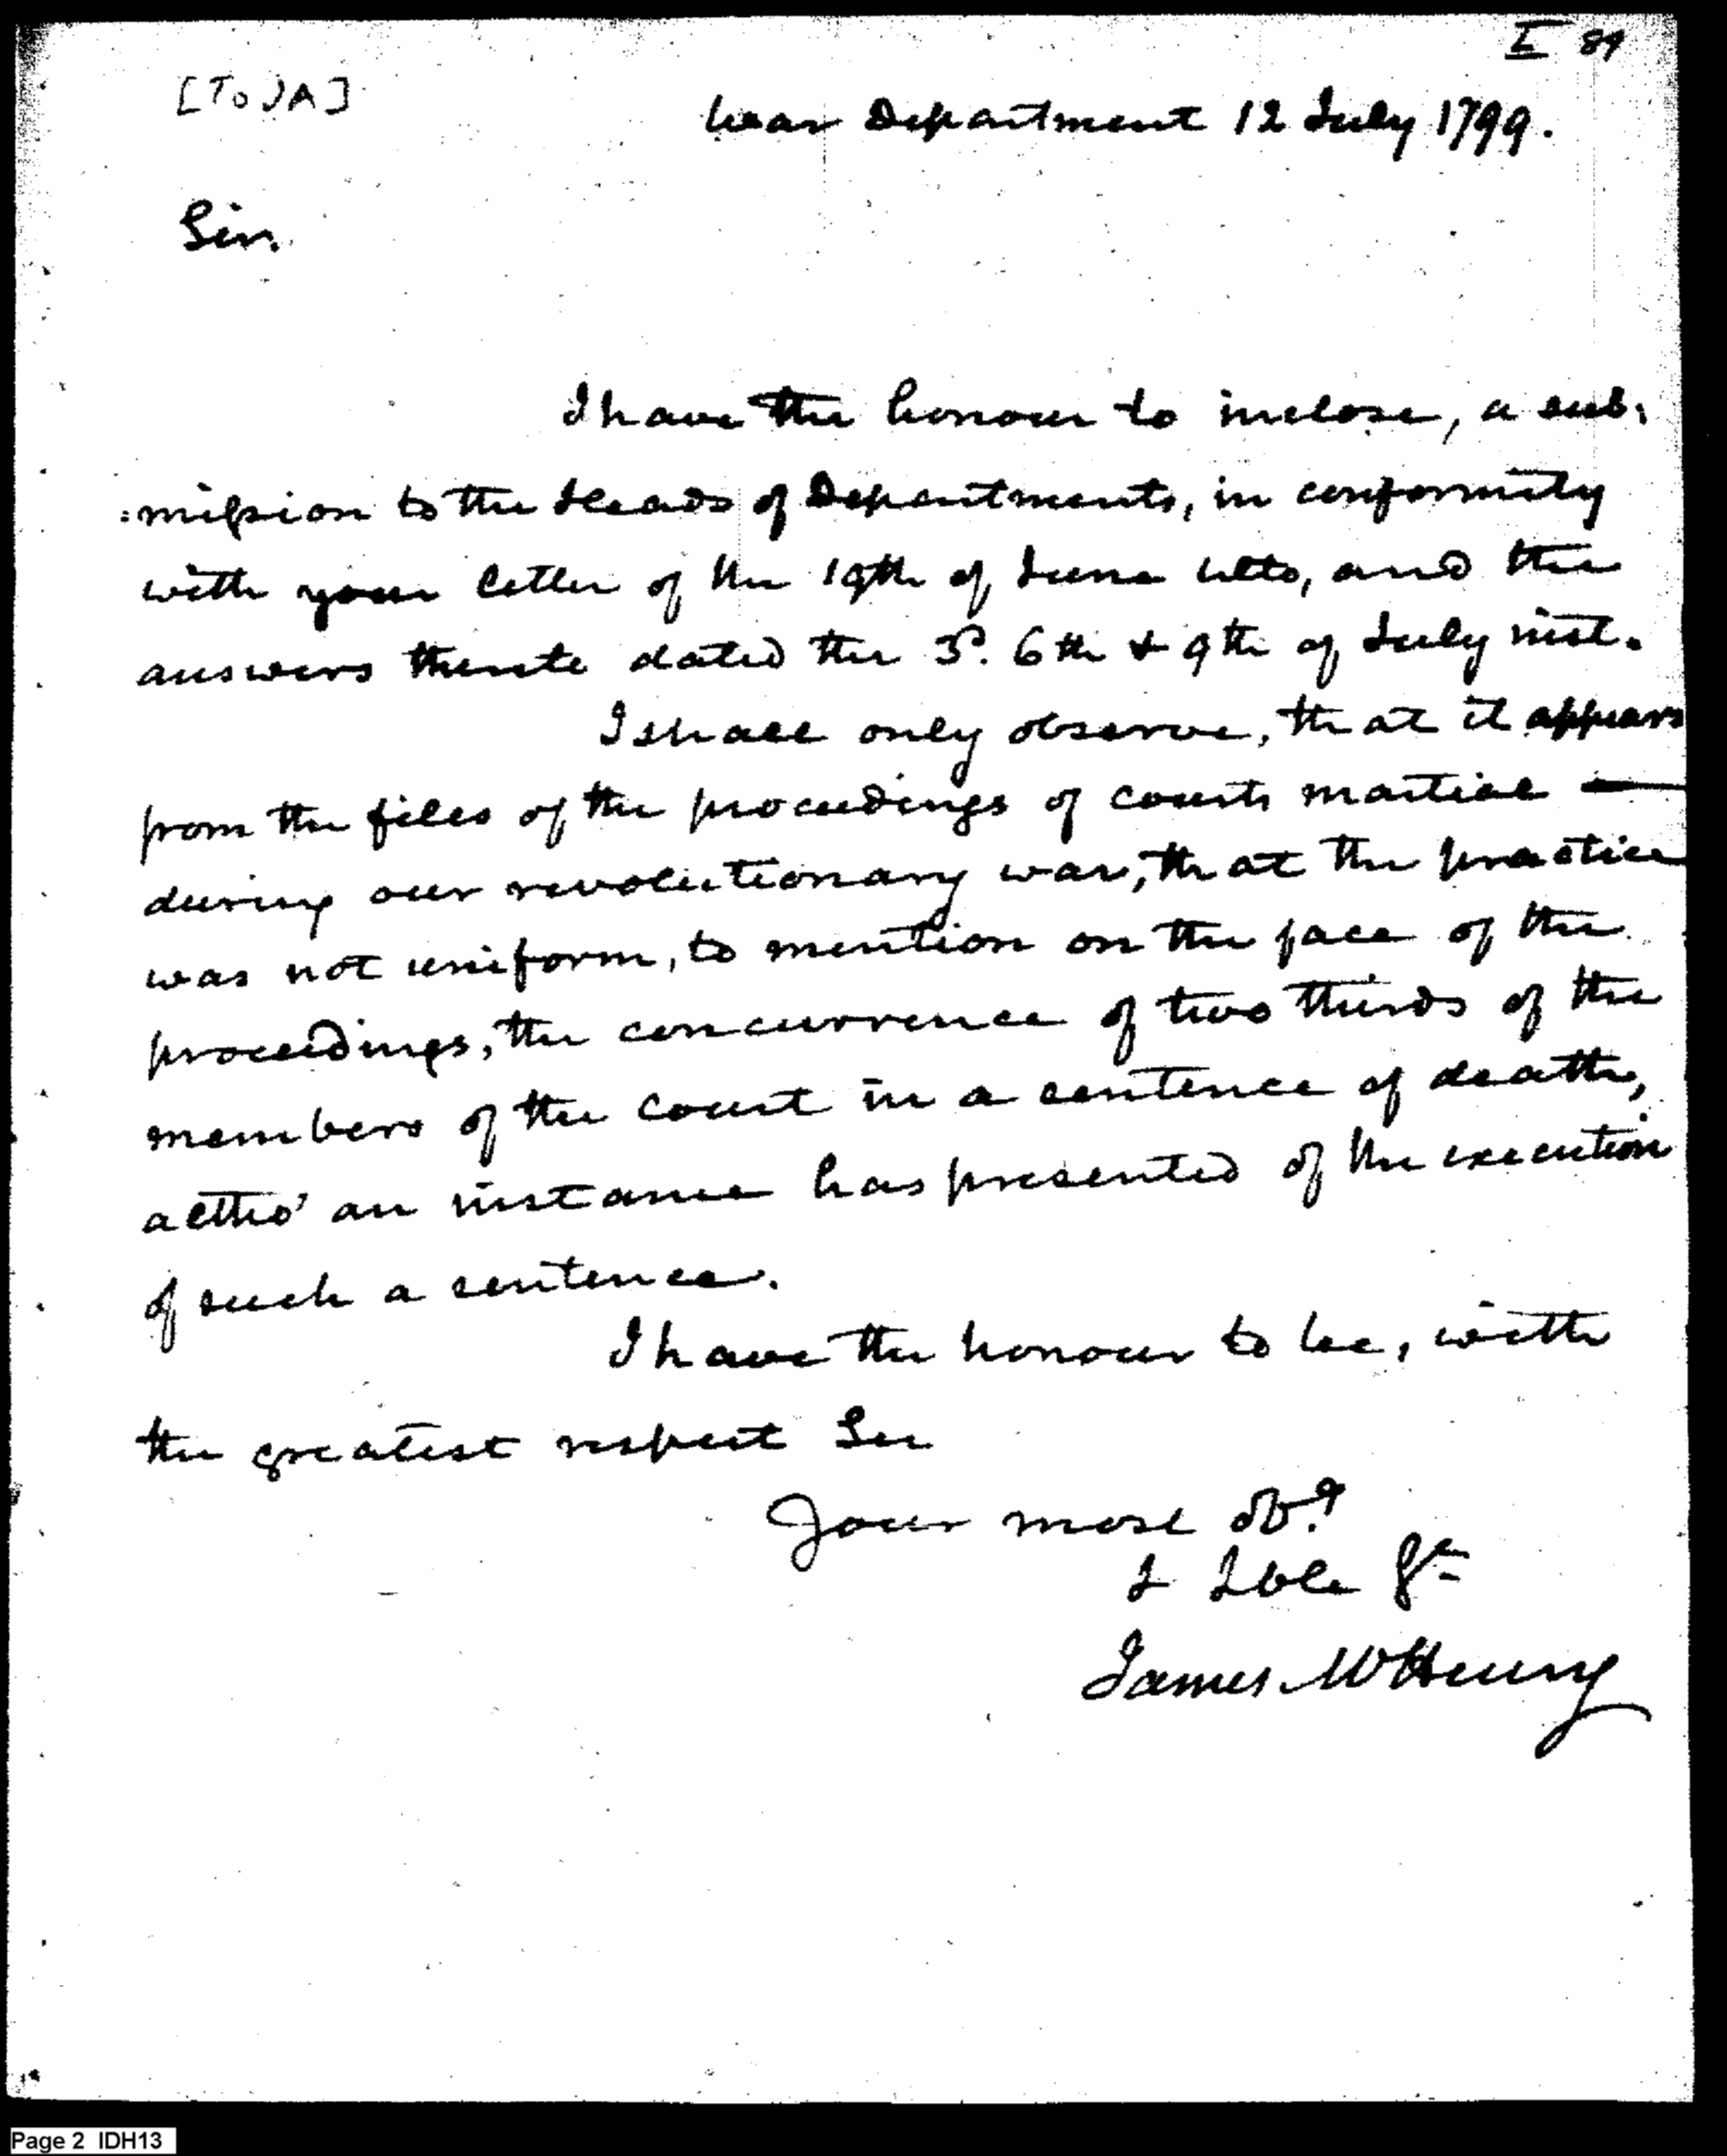 I 89
[To JA]
War Department 12 July 1799.
Sir.
I have the honour to inclose, a sub:
:mission to the Heads of Departments, in conformity
with your letter of the 19th of June ulto, and the
answers thereto dated the 3d. 6th & 9th of July inst.
I shall only observe, that it appears
from the files of the proceedings of courts martial —
during our revolutionary war, that the practice
was not uniform, to mention on the face of the
proceedings, the concurrence of two thirds of the
members of the court in a sentence of death,
altho' an instance has presented of the execution
of such a sentence.
I have the honour to be, with
the greatest respect Sir
Your most obt
& Hble St
James McHenry
Page 2 IDH13